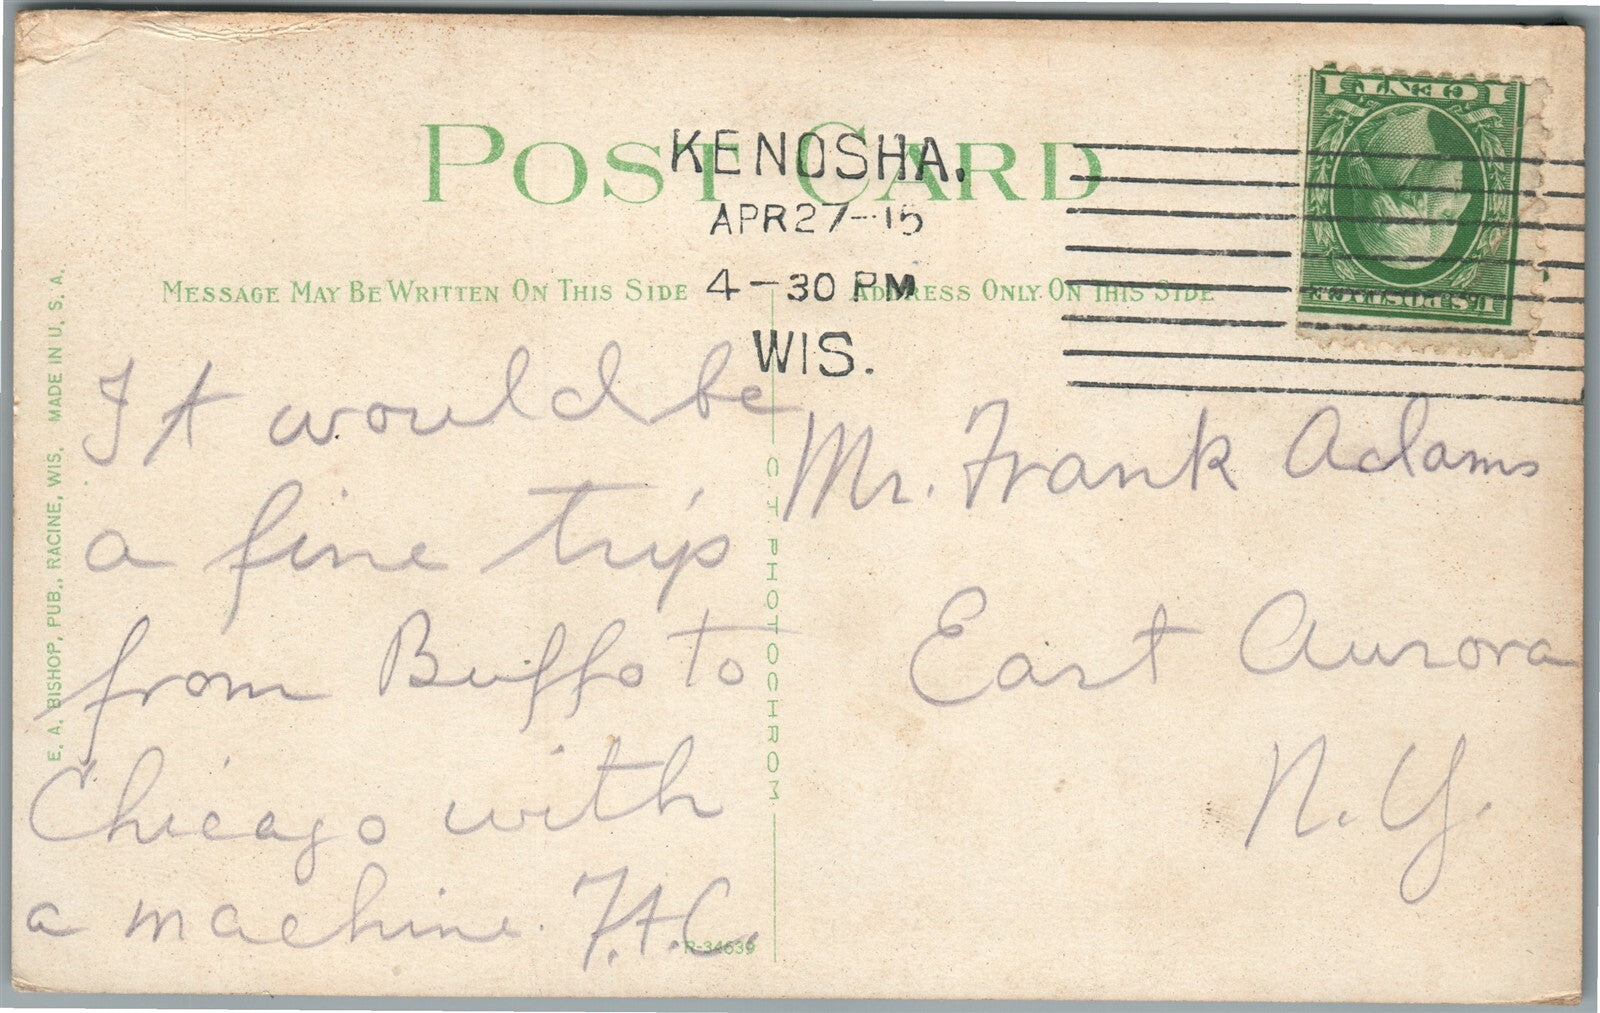 POST CARD
KENOSHA.
APR 27-15
4-30 PM
WIS.
MESSAGE MAY BE WRITTEN ON THIS SIDE
ADDRESS ONLY ON THIS SIDE
It would be
a fine trip
from Buffo to
Chicago with
a machine. F.A.C.
Mr. Frank Adams
East Aurora
N.Y.
E. A. BISHOP, PUB., RACINE, WIS. MADE IN U. S. A.
C. T. PHOTOCHROM
R-34639
1 CENT 1